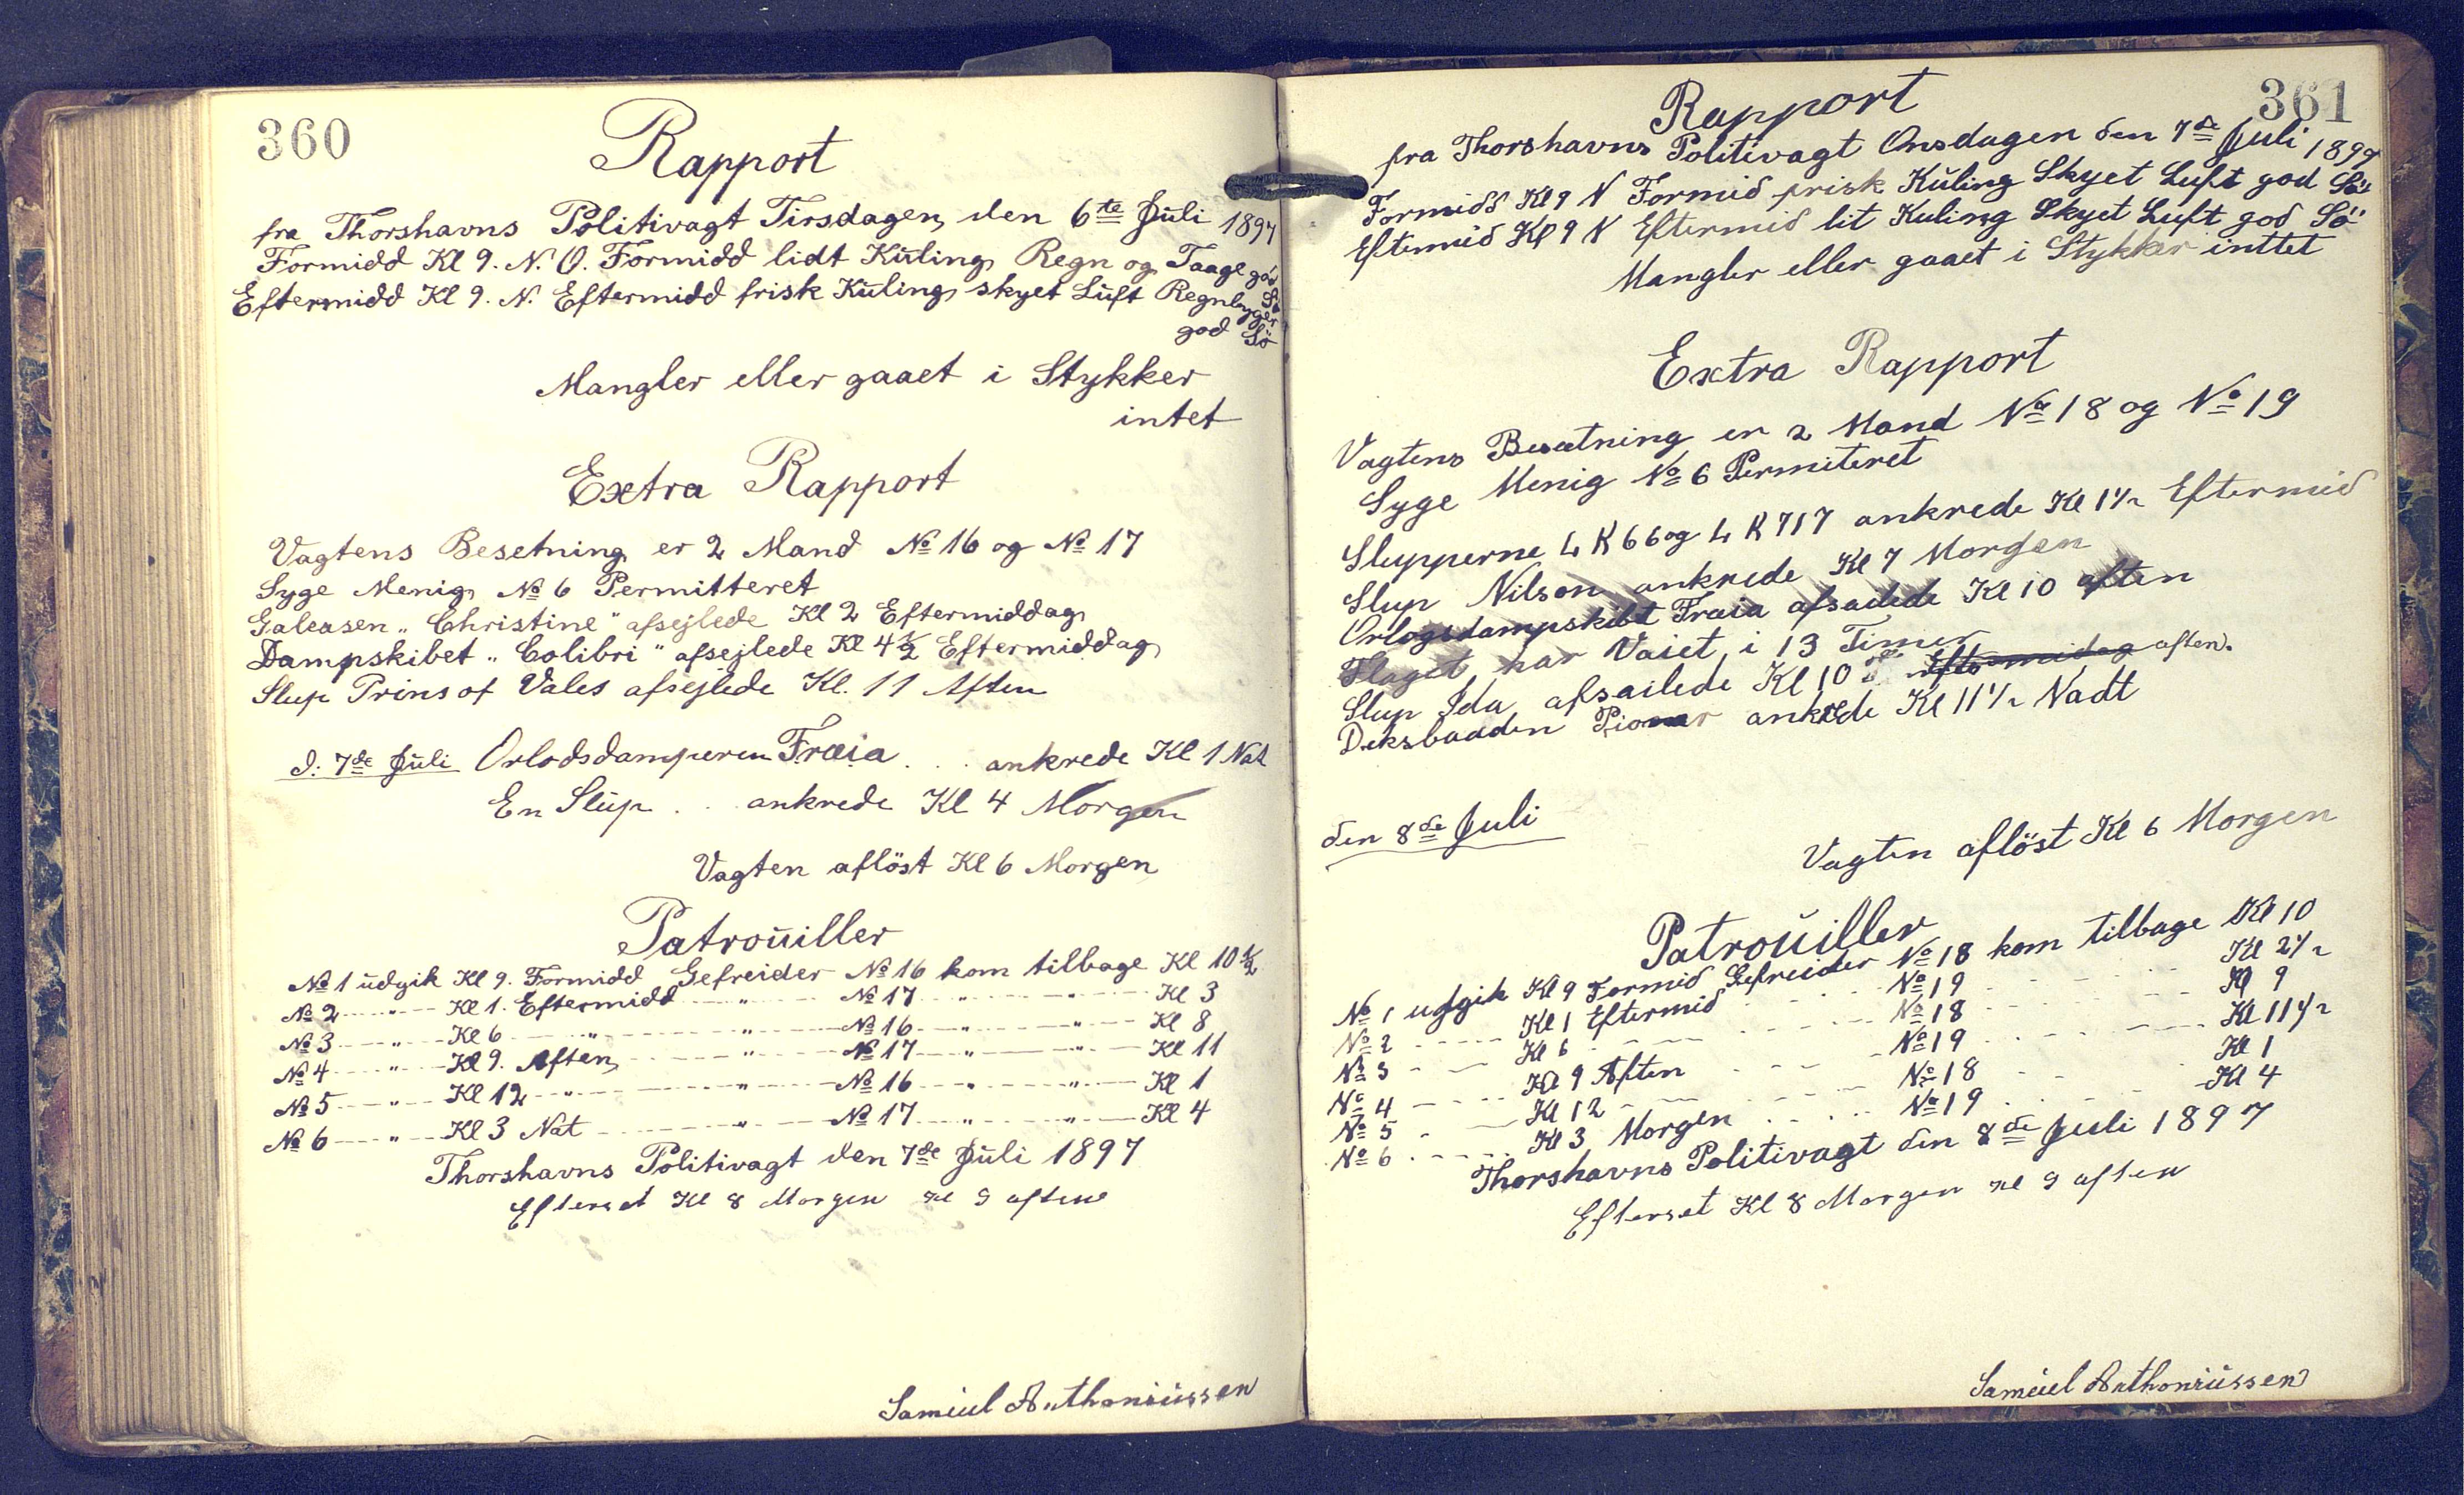 360
Rapport
fra Thorshavns Politivagt Tirsdagen, den 6te Juli 1897
Formidd Kl 9. N. O. Formidd lidt Kuling Regn og Taage god Sö
Eftermidd Kl 9. N. Eftermidd frisk Kuling skyet Luft Regnbyger
god Sö
Mangler eller gaaet i Stykker
intet
Extra Rapport
Vagtens Besetning er 2 Mand No 16 og No 17
Syge Menig No 6 Permitteret
Galeasen „Christine" afsejlede Kl 2 Eftermiddag
Dampskibet „Colibri" afsejlede Kl 4 1/2 Eftermiddag
Slup Prins of Vales afsejlede Kl. 11 Aften
d. 7de Juli Orlodsdamperen Fræia . . . ankrede Kl 1 Nat
En Slup . . ankrede Kl 4 Morgen
Vagten aflöst Kl 6 Morgen
Patrouiller
No 1 udgik Kl 9. Formidd Gefreider No 16 kom tilbage Kl 10 1/2
No 2 — „ — Kl 1. Eftermidd — „ — No 17 — „ — „ — Kl 3
No 3 — „ — Kl 6 — „ — „ — No 16 — „ — „ — Kl 8
No 4 — „ — Kl 9. Aften — „ — No 17 — „ — „ — Kl 11
No 5 — „ — Kl 12 — „ — „ — No 16 — „ — „ — Kl 1
No 6 — „ — Kl 3 Nat — „ — No 17 — „ — „ — Kl 4
Thorshavns Politivagt den 7de Juli 1897
Efterset Kl 8 Morgen Kl 9 aften
Samuel Anthoniussen
361
Rapport
fra Thorshavns Politivagt Onsdagen den 7de Juli 1897
Formidd Kl 9 N Formid frisk Kuling Skyet Luft god Sö
Eftermid Kl 9 N Eftermid lit Kuling Skyet Luft god Sö
Mangler eller gaaet i Stykker inttet
Extra Rapport
Vagtens Besætning er 2 Mand No 18 og No 19
Syge Menig No 6 Permiteret
Slupperne L K 66 og L K 717 ankrede Kl 1 1/2 Eftermid
Slup Nilson ankrede Kl 7 Morgen
Orlogsdampskibt Fræia afsailede Kl 10 aften
Flaget har Vaiet i 13 Timer
Slup Ida afsailede Kl 10 Eftermidag aften.
Deksbaaden Pioner ankrede Kl 11 1/2 Nadt
den 8de Juli
Vagten aflöst Kl 6 Morgen
Patrouiller
No 1 udgik Kl 9 Formid Gefreider No 18 kom tilbage Kl 10
No 2 - - - - Kl 1 Eftermid - - - No 19 - - - - Kl 2 1/2
No 3 - - - Kl 6 - - - - No 18 - - - - Kl 9
No 4 - - - - Kl 9 Aften - - - No 19 - - - - Kl 11 1/2
No 5 - - Kl 12 - - - - No 18 - - - Kl 1
No 6 - - - - Kl 3 Morgen - - - No 19 - - - Kl 4
Thorshavns Politivagt den 8de Juli 1897
Efterset Kl 8 Morgen Kl 9 aften
Samuel Anthoniussen